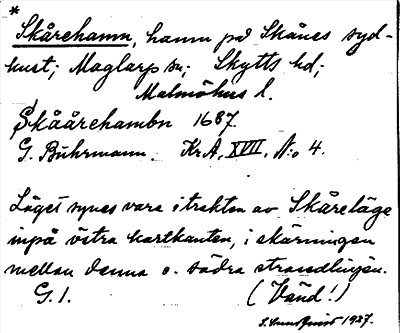 *
Skårehamn, hamn på Skånes syd-
kust; Maglarp sn; Skytts hd;
Malmöhus l.
Skåårehambn 1687.
G. Buhrmann. KrA, XVIII, N:o 4.
Läget synes vara i trakten av Skåreläge
inpå västra kartkanten, i skärningen
mellan denna o. södra strandlinjen.
G. I. (Vänd!)
1927.